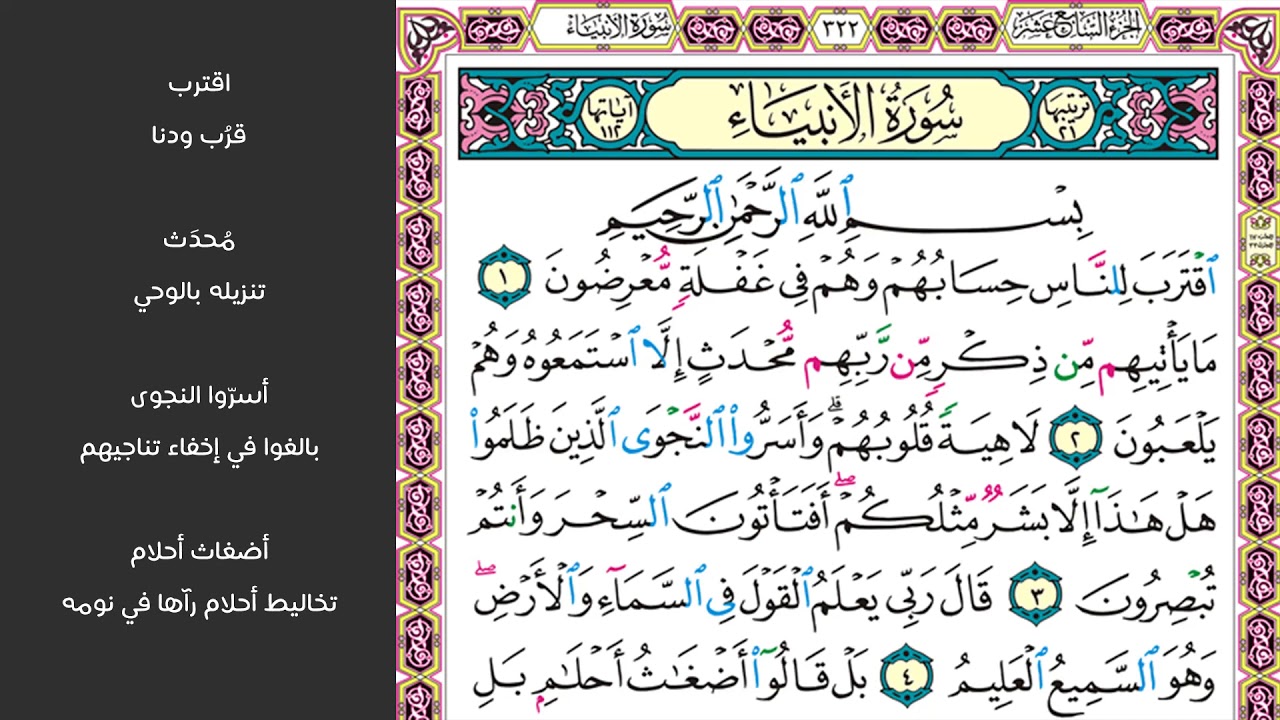 الجزء السابع عشر
٣٢٢
سورة الأنبياء
ترتيبها ٢١
سُورَةُ الأَنبِيَاءِ
آياتها ١١٢
بِسْمِ ٱللَّهِ ٱلرَّحْمَٰنِ ٱلرَّحِيمِ
ٱقْتَرَبَ لِلنَّاسِ حِسَابُهُمْ وَهُمْ فِى غَفْلَةٍ مُّعْرِضُونَ ١
مَا يَأْتِيهِم مِّن ذِكْرٍ مِّن رَّبِّهِم مُّحْدَثٍ إِلَّا ٱسْتَمَعُوهُ وَهُمْ
يَلْعَبُونَ ٢ لَاهِيَةً قُلُوبُهُمْ ۗ وَأَسَرُّوا۟ ٱلنَّجْوَى ٱلَّذِينَ ظَلَمُوا۟
هَلْ هَٰذَآ إِلَّا بَشَرٌ مِّثْلُكُمْ ۖ أَفَتَأْتُونَ ٱلسِّحْرَ وَأَنتُمْ
تُبْصِرُونَ ٣ قَالَ رَبِّى يَعْلَمُ ٱلْقَوْلَ فِى ٱلسَّمَآءِ وَٱلْأَرْضِ ۖ
وَهُوَ ٱلسَّمِيعُ ٱلْعَلِيمُ ٤ بَلْ قَالُوٓا۟ أَضْغَٰثُ أَحْلَٰمٍ بَلِ
اقترب
قرُب ودنا
مُحدَث
تنزيله بالوحي
أسرّوا النجوى
بالغوا في إخفاء تناجيهم
أضغاث أحلام
تخاليط أحلام رآها في نومه